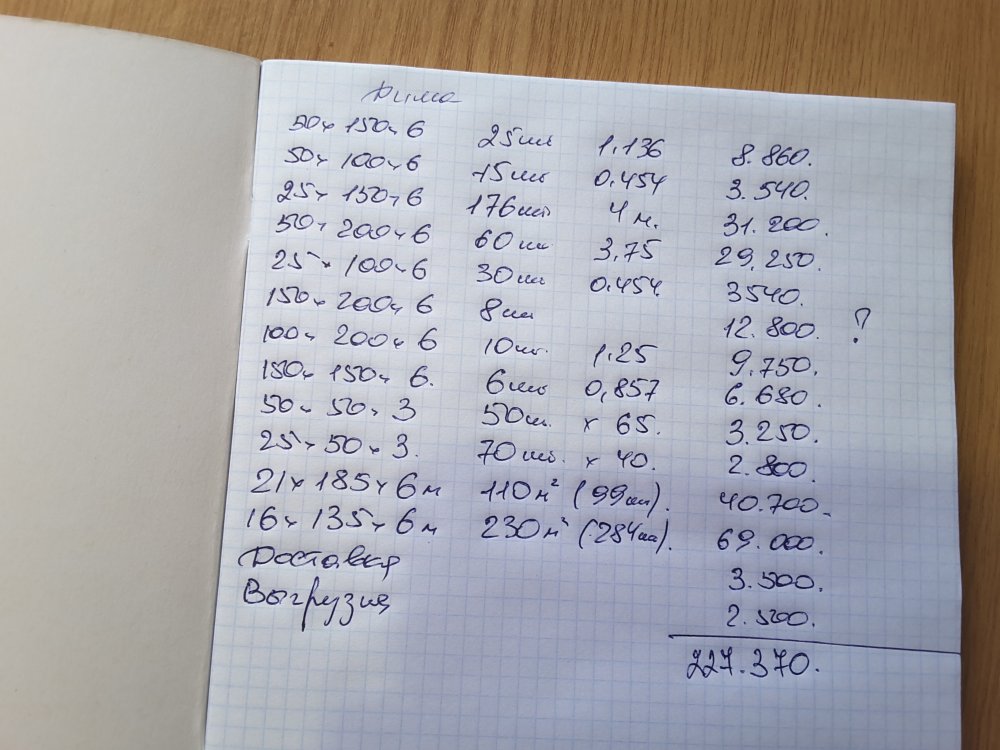 Дима
50x150x6 25шт 1.136 8.860.
50x100x6 15шт 0.454 3.540.
25x150x6 176шт 4м. 31.200.
50x200x6 60шт 3,75 29.250.
25x100x6 30шт 0.454 3540.
150x200x6 8шт 12.800. ?
100x200x6 10шт. 1.25 9.750.
150x150x6. 6шт 0,857 6.680.
50x50x3 50шт. x 65. 3.250.
25x50x3. 70шт. x 40. 2.800.
21x185x6м 110м² (99шт). 40.700.
16x135x6м 230м² (284шт). 69.000.
Доставка 3.500.
Выгрузка 2.500.
227.370.